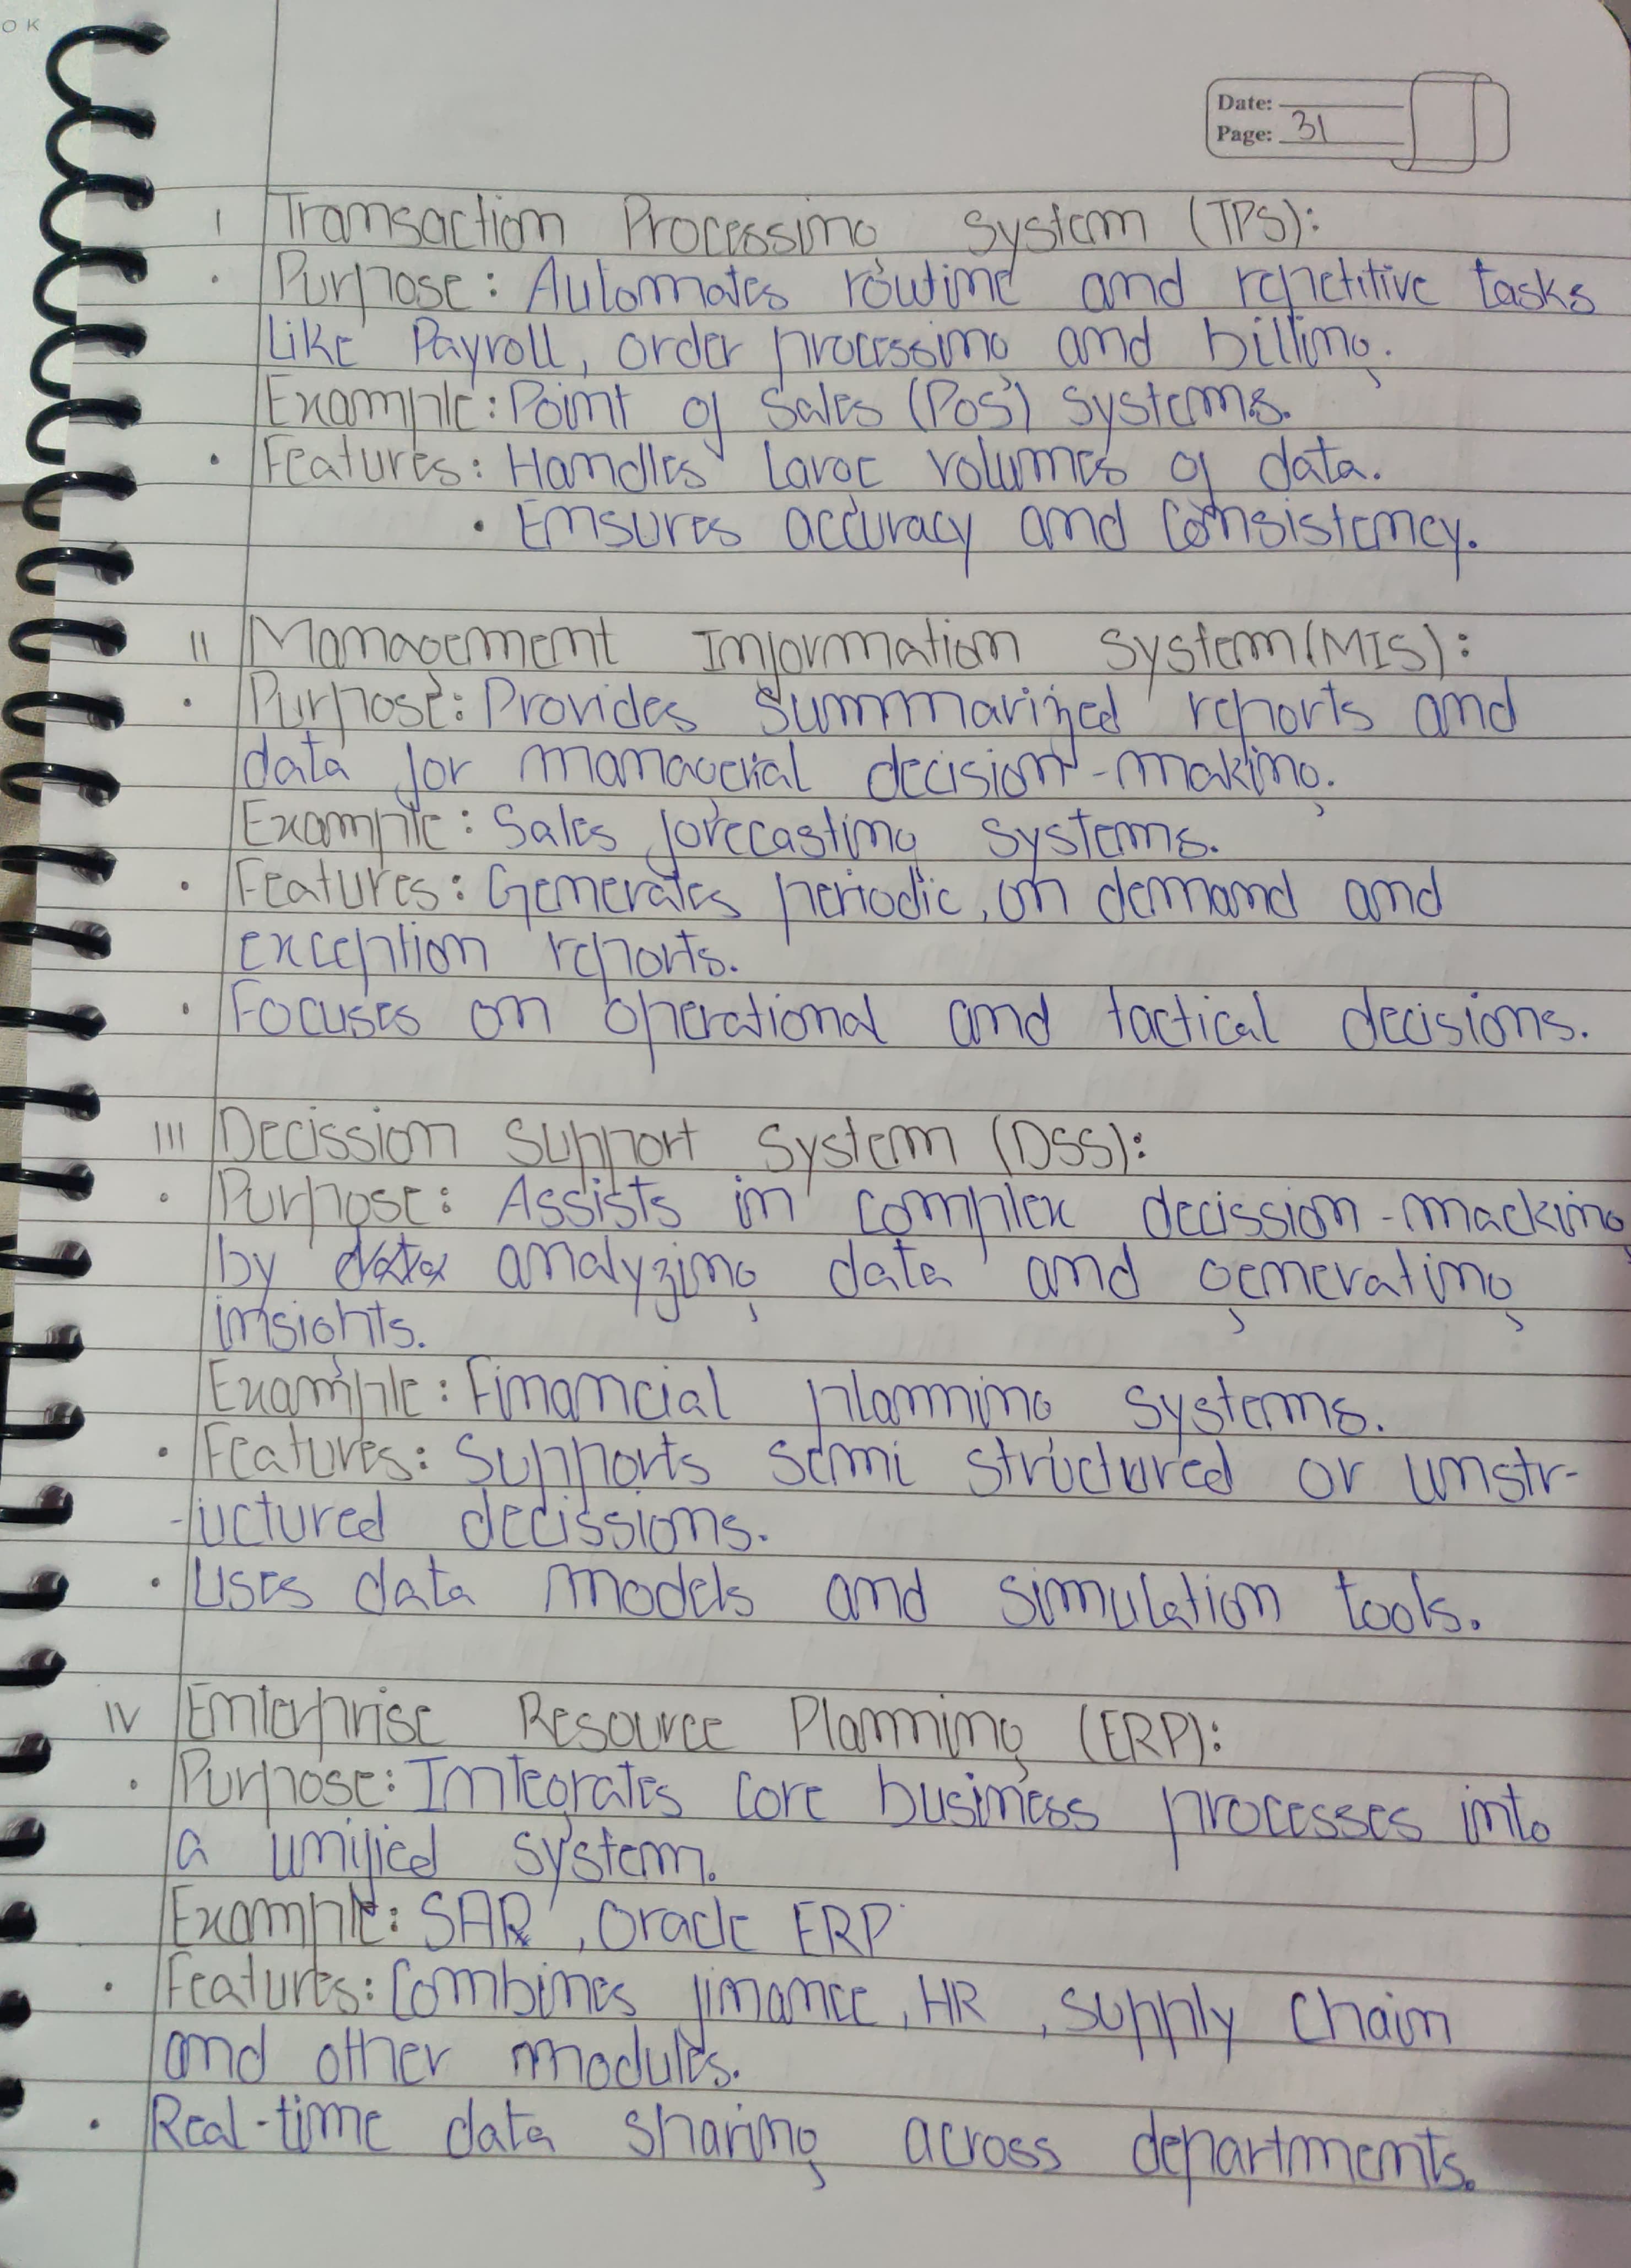 OK
Date:
Page: 31
I Transaction Processing System (TPS):
• Purpose: Automates routine and repetitive tasks
like Payroll, order processing and billing.
Example: Point of Sales (POS) systems.
• Features: Handles large volumes of data.
• Ensures accuracy and consistency.
II Management Information System (MIS):
• Purpose: Provides summarized reports and
data for managerial decision-making.
Example: Sales forecasting systems.
• Features: Generates periodic, on demand and
exception reports.
• Focuses on operational and tactical decisions.
III Decission Support System (DSS):
• Purpose: Assists in complex decission-macking
by data analyzing data and generating
insights.
Example: Financial planning systems.
• Features: Supports semi structured or unstr-
-uctured decissions.
• Uses data models and simulation tools.
IV Enterprise Resource Planning (ERP):
• Purpose: Integrates core business processes into
a unified system.
Example: SAP, Oracle ERP
• Features: Combines finance, HR, supply chain
and other modules.
• Real-time data sharing across departments.